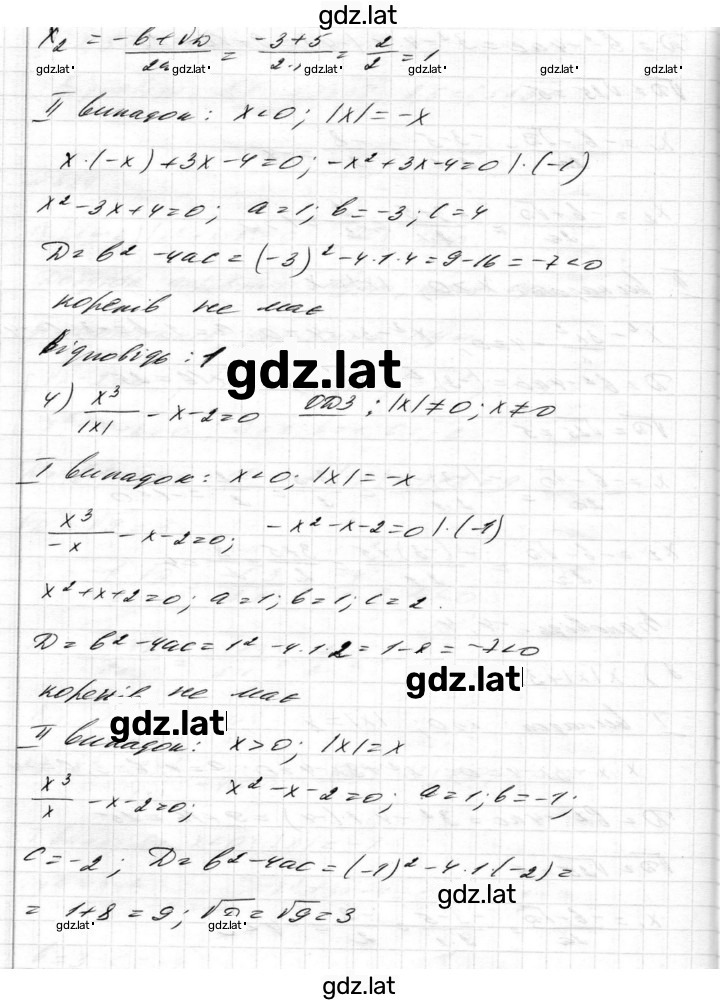 gdz.lat
x₂ = (-b+√D)/2a = (-3+5)/2·1 = 2/2 = 1
gdz.lat gdz.lat gdz.lat gdz.lat
II випадок: x<0; |x|=-x
x·(-x)+3x-4=0; -x²+3x-4=0 |·(-1)
x²-3x+4=0; a=1; b=-3; c=4
D=b²-4ac=(-3)²-4·1·4=9-16=-7<0
коренів не має
Відповідь: 1
gdz.lat
4) x³/|x| -x-2=0 ОДЗ; |x|≠0; x≠0
I випадок: x<0; |x|=-x
x³/-x -x-2=0; -x²-x-2=0 |·(-1)
x²+x+2=0; a=1; b=1; c=2.
D=b²-4ac=1²-4·1·2=1-8=-7<0
gdz.lat
коренів не має
gdz.lat
II випадок: x>0; |x|=x
x³/x -x-2=0; x²-x-2=0; a=1; b=-1;
c=-2; D=b²-4ac=(-1)²-4·1·(-2)=
gdz.lat
= 1+8=9; √D=√9=3
gdz.lat gdz.lat gdz.lat gdz.lat
gdz.lat